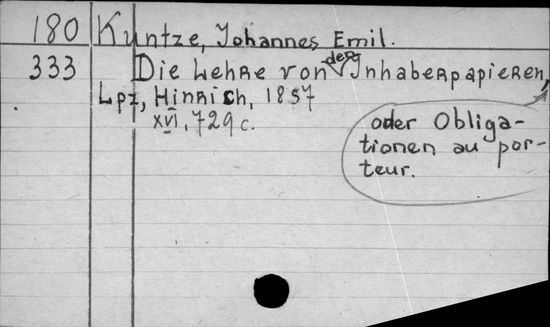 180 Kuntze, Johannes Emil.
333 Die Lehre von den Inhaberpapieren,
Lpz, Hinrich, 1857
XVI, 729 c.
oder Obliga-
tionen au por-
teur.